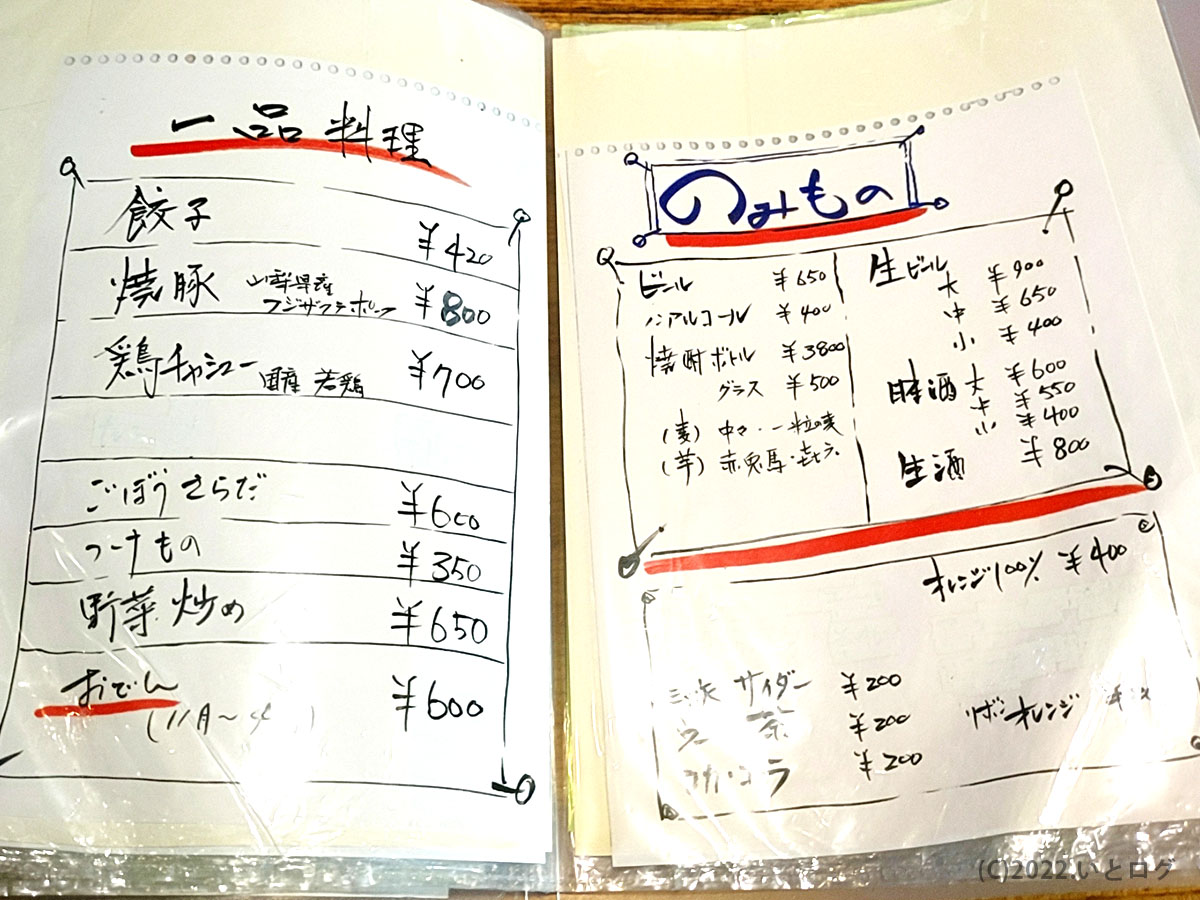 一品料理
餃子 ¥420
焼豚 山梨県産 フジザクラポーク ¥800
鶏チャシュー 国産 若鶏 ¥700
ごぼうさらだ ¥600
つけもの ¥350
野菜炒め ¥650
おでん ¥600
(11月〜4 )
のみもの
ビール ¥650
ノンアルコール ¥400
焼酎ボトル ¥3800
グラス ¥500
(麦) 中々・一粒の麦
(芋) 赤兎馬・
生ビール
大 ¥900
中 ¥650
小 ¥400
日本酒 大 ¥600
中 ¥550
小 ¥400
生酒 ¥800
オレンジ100% ¥400
三ツ矢サイダー ¥200
ウー 茶 ¥200
コカ・コーラ ¥200
リボンオレンジ
(C)2022.いとログ